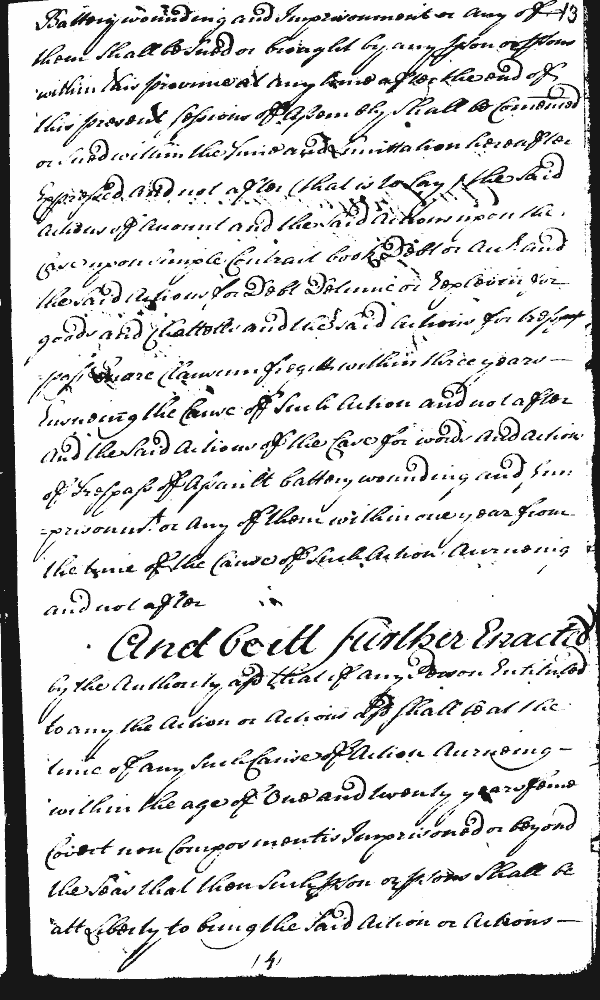 Battery wounding and Imprisonment or any of 13
them Shall be Sued or brought by any pson or psons
within this province at any time after the end of
this present sessions of Assembly Shall be Comenced
or Sued within the time and Limittation hereafter
Expressed and not after (that is to Say) the said
actions of Account and the said Actions upon the
Case upon Simple Contract book Debt or Acct and
the said Actions for Debt Detinue or Repleven for
goods and Chattells and the said Actions for tresspass
quare Clausum fregitt within three years —
Ensueing the Cause of Such Action and not after
And the Said Actions of the Case for words and Action
of Trespass of Assault battery wounding and Im
-prisonmt. or Any of them within one year from
the time of the Cause of Such Action Accrueing
and not after
And be itt further Enacted
by the Authority afsd that if any Person Entituled
to any the Action or Actions afsd Shall be at the
time of any Such Cause of Action Accrueing —
within the age of One and twenty years feme
Covert non Compos mentis Imprisoned or beyond
the Seas that then Such pson or psons Shall be
att Liberty to bring the Said Action or Actions —